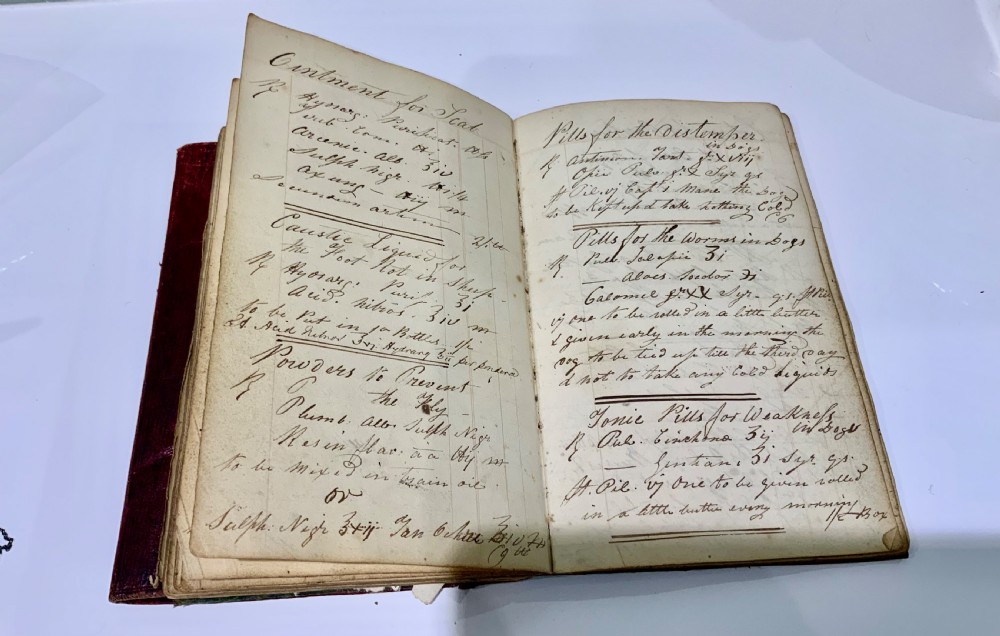 Ointment for Scab
℞ Hydrarg. Purificat.
Tereb. Com.
arsenic Alb. ℥iv
Sulph Nigr.
axung — m
2/-
Caustic Liquid for
the Foot Rot in Sheep —
℞ Hydrarg. Purif. ℥i
acid. nitros. ℥iv m
to be put in Bottles
Acid Nitros Hydrarg
Powders to Prevent
the Fly —
℞
Plumb. alb. Sulph Nigr
Resin flav. a a m
to be mixed in train oil.
or
Sulph. Nigr ℥xij
Pills for the Distemper
in Dogs
℞ antimon. Tart. gr XVIij
Opii Pulv. Syr. qs
ft Pil. vj Cap't mane the Dog
to be kept up & take nothing Cold
Pills for the Worms in Dogs
℞ Pulv. Jalapii ʒi
— aloes
Calomel gr. XX Syr. qs. ft Pil
vj one to be rolled in a little butter
& given early in the morning the
Dog to be tied up till the third day
& not to take any Cold liquids
Tonic Pills for Weakness
in Dogs
℞ Pul. Cinchona ʒij
— Gentian. ʒi Syr. qs.
ft. Pil. vj one to be given rolled
in a little butter every morning
Box